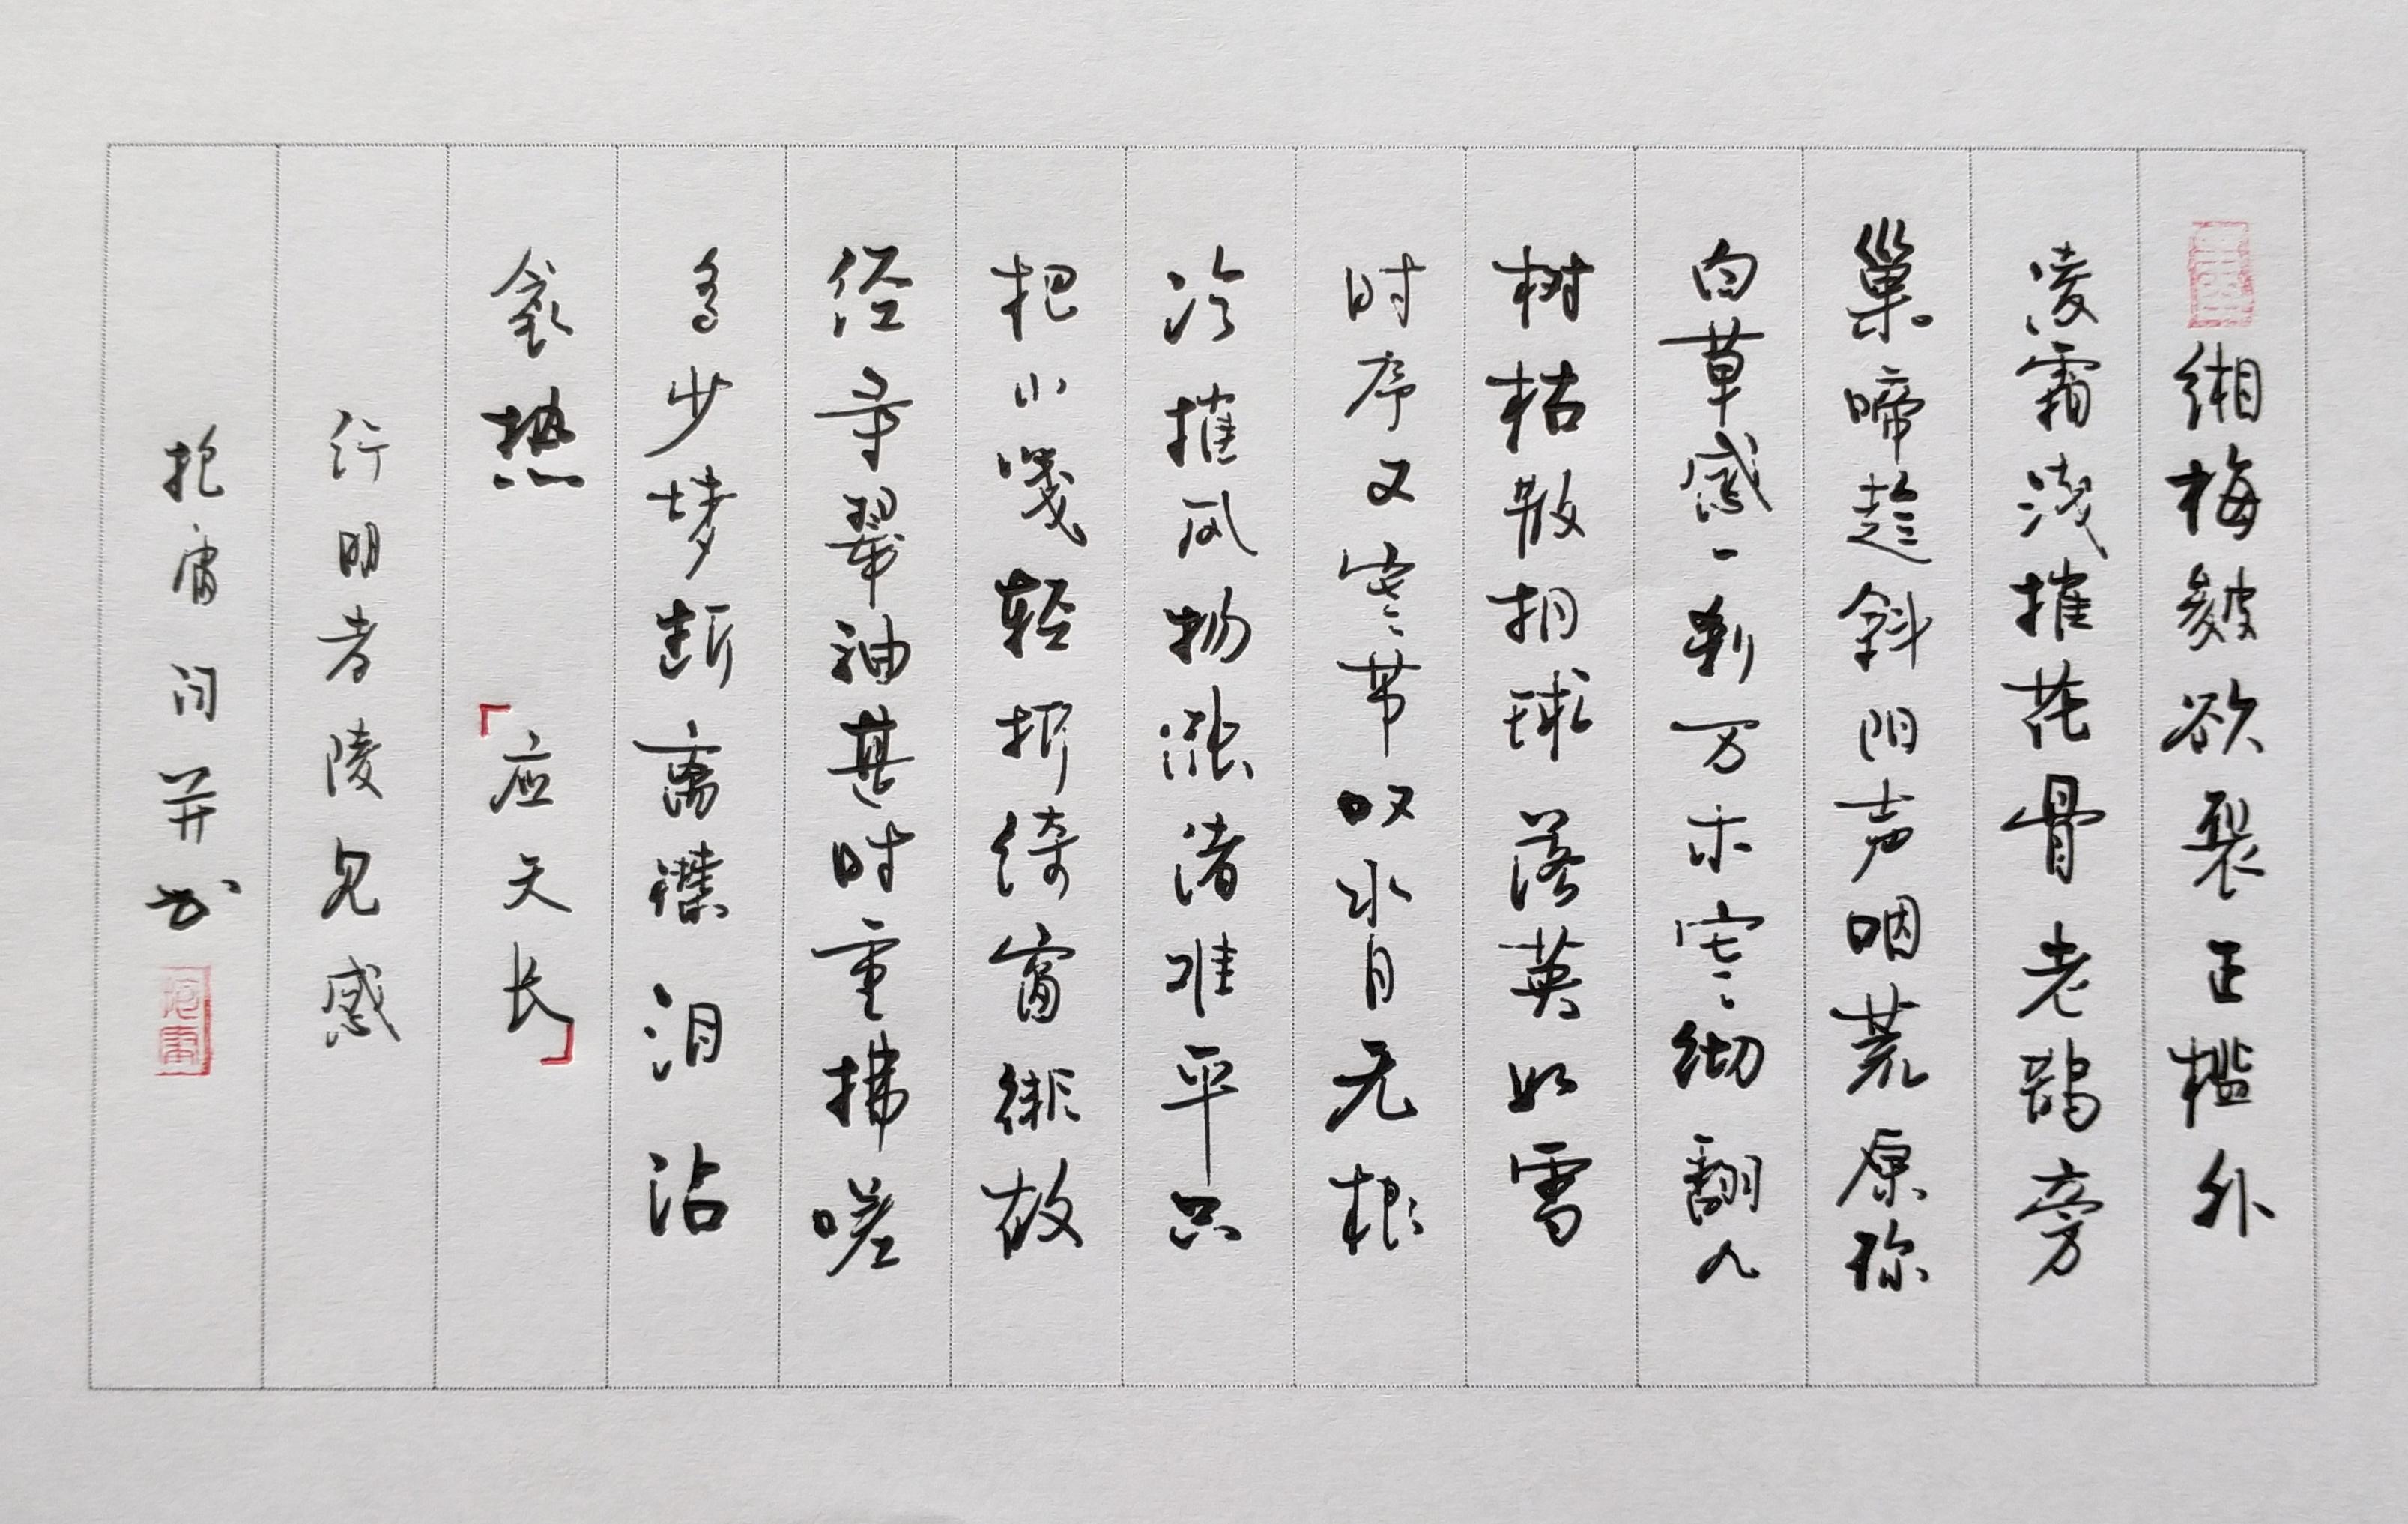 缃梅皴欲裂正槛外
凌霜浅摧花骨老鹊旁
巢啼趁斜阳声咽荒原
白草感一刹万木寒彻翻
树枯散捐球落英如雪
时序又寒节叹水月无根
冷摧风物涨渚难平只
把小笺轻折绮窗徘故
径寻翠袖甚时重拂嗟
多少梦断离襟泪沾
衾热 「应天长」
行明孝陵见感
抱庸问并书